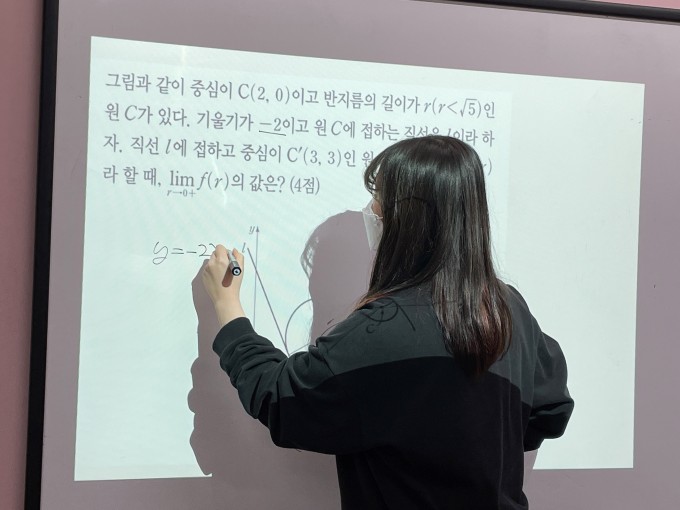 그림과 같이 중심이 C(2, 0)이고 반지름의 길이가 r(r<√5)인
원 C가 있다. 기울기가 −2이고 원 C에 접하는 직선을 l이라 하
자. 직선 l에 접하고 중심이 C′(3, 3)인 원
라 할 때, lim f(r)의 값은? (4점)
r→0+
y
y=-2x